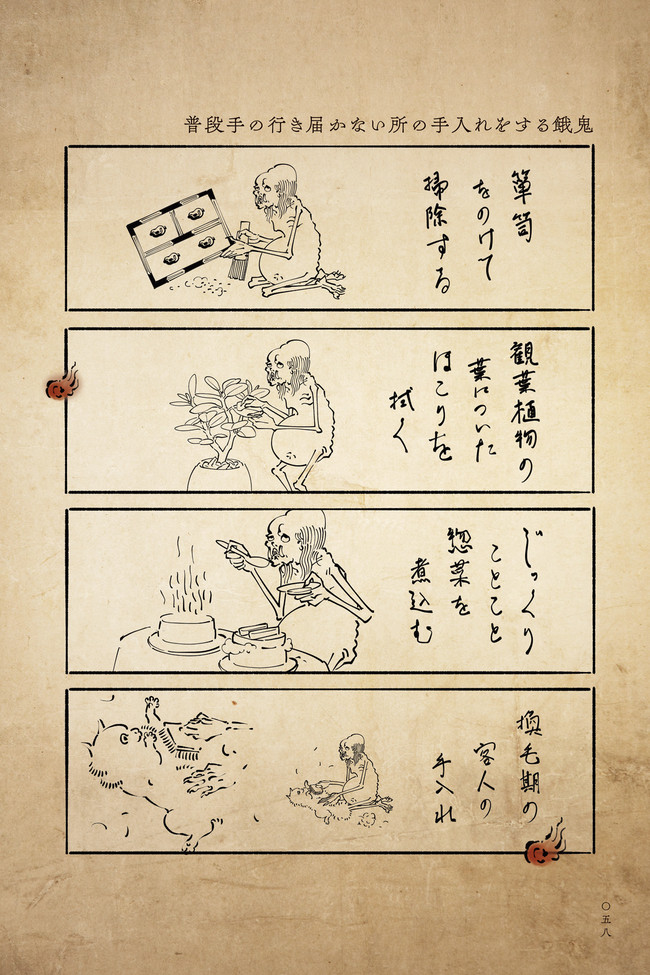 普段手の行き届かない所の手入れをする餓鬼
箪笥
をのけて
掃除する
観葉植物の
葉についた
ほこりを
拭く
じっくり
ことこと
惣菜を
煮込む
換毛期の
客人の
手入れ
〇五八